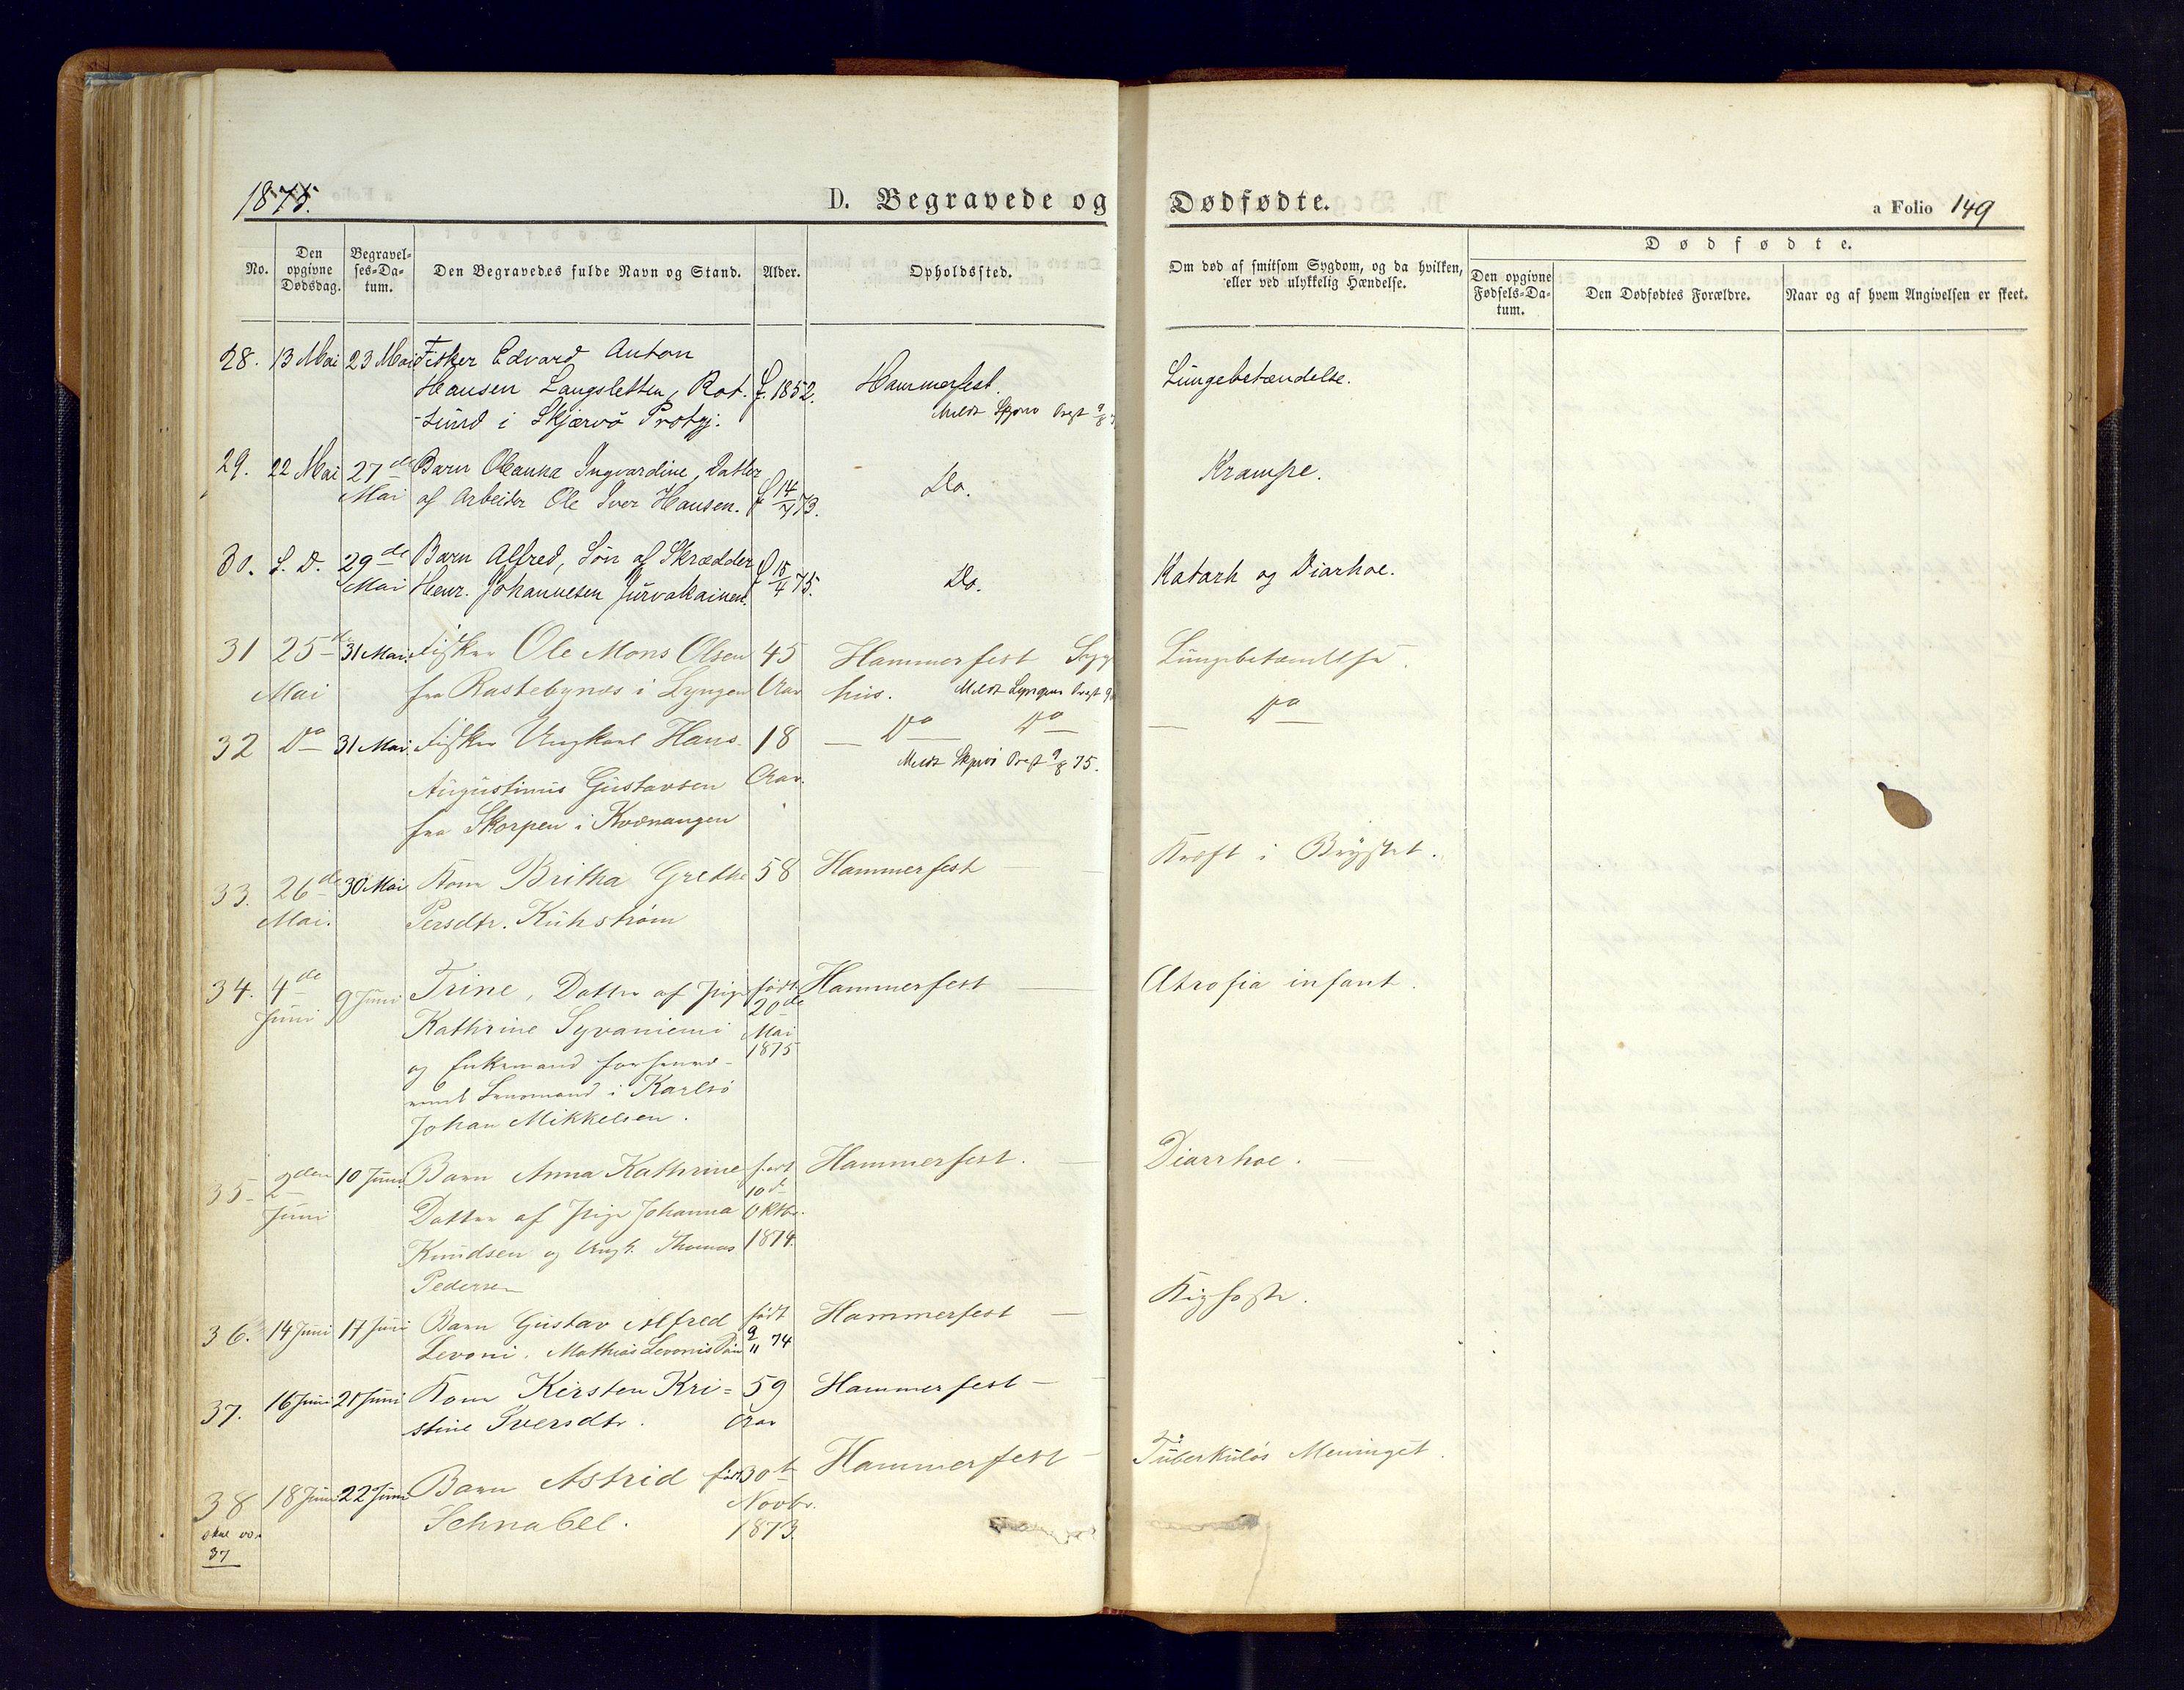 1875.
D. Begravede og Dødfødte.
a Folio 149
No.
Den opgivne Dødsdag.
Begravel-
ses-Da-
tum.
Den Begravedes fulde Navn og Stand.
Alder.
Opholdssted.
Om død af smitsom Sygdom, og da hvilken,
eller ved ulykkelig Hændelse.
Dødfødte.
Den opgivne
Fødsels-Da-
tum.
Den Dødfødtes Forældre.
Naar og af hvem Angivelsen er skeet.
28. 13 Mai 23 Mai Fisker Edvard Anton
Hansen Langsletten, Rot- f. 1852. Hammerfest. Lungebetændelse.
-sund i Skjærvö Prstgj. Meldt Skjervö Prest 9/8
29. 22 Mai 27de Barn Oleanna Ingvardine, Datter Do. Krampe.
Mai af Arbeider Ole Iver Hansen. f 14/7 73.
30. S. D. 29de Barn Alfred, Søn af Skrædder f 15/4 75. Do. Katarh og Diarhoe.
Mai Henr. Johannesen Jurvakainen.
31 25de 31 Mai. Fisker Ole Mons Olsen 45 Hammerfest Syge Lungebetændelse.
Mai fra Rastebynes i Lyngen Aar hus. Meldt Lyngen Prest 9
32 Do 31 Mai. Fisker Ungkarl Hans 18 — Do Do — Do
Augustinus Gustavsen Aar. Meldt Skjervö Prest 9/8 75.
fra Skorpen i Kvænangen
33. 26de 30 Mai Kone Britha Grethe 58 Hammerfest — Kræft i Brystet.
Mai. Persdtr. Kuhström
34. 4de 9 Juni Trine, Datter af Pige født Hammerfest — Atrofia infant.
Juni Kathrine Syvaniemi 20de Mai 1875
og Enkemand
Lensmand i Karlsö
Johan Mikkelsen.
35 2den 10 Juni Barn Anna Kathrine født Hammerfest. — Diarrhoe. —
Juni Datter af Pige Johanna 10de Oktbr.
Knudsen og Ungk. Thomas 1874.
Pedersen
36. 14 Juni 17 Juni Barn Gustav Alfred født Hammerfest — Kighoste.
Levoni. Mathias Levonis Søn 9/11 74
37. 16 Juni 21 Juni Kone Kirsten Kri= 59 Hammerfest —
stine Iversdtr. Aar
38 18 Juni 22 Juni Barn Astrid født 30te Hammerfest — Tüberkulös Meningit.
skal vær Schnabel. Novbr.
37 1873.